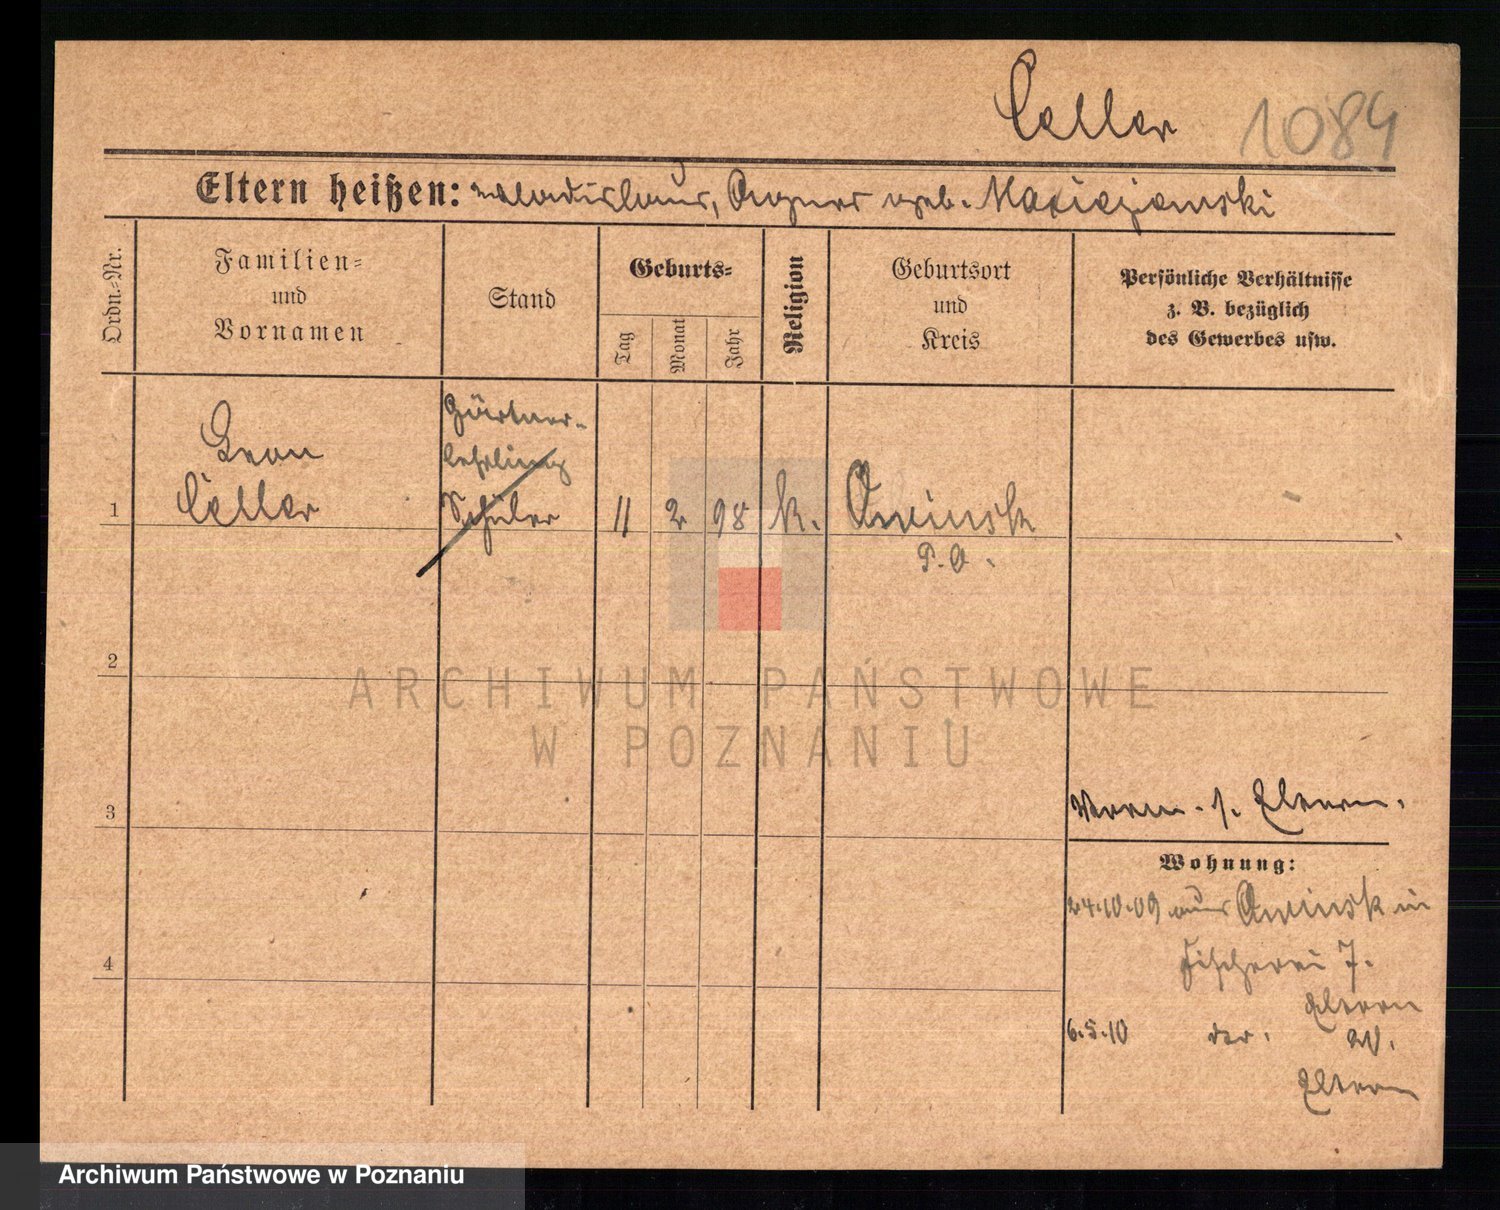 Celler 1084
Eltern heißen: Wladislaus, Agnes geb. Maciejewski
Ordn.-Nr.
Familien-
und
Vornamen
Stand
Geburts-
Tag
Monat
Jahr
Religion
Geburtsort
und
Kreis
Persönliche Verhältnisse
z. B. bezüglich
des Gewerbes usw.
Gärtner-
lehrling
Leon
Celler
1 Schüler 11 2 98 k. Owinsk
P. O.
2
ARCHIWUM PAŃSTWOWE
W POZNANIU
3
Verm. s. Eltern.
Wohnung:
24.10.09 aus Owinsk in
4
Fischerei 7.
Eltern
6.5.10
Eltern
Archiwum Państwowe w Poznaniu